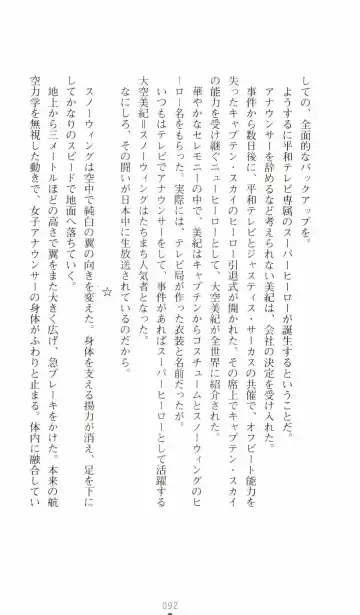 しての、全面的なバックアップを。
　ようするに平和テレビ専属のスーパーヒーローが誕生するということだ。
　アナウンサーを辞めるなど考えられない美紀は、会社の決定を受け入れた。
　事件から数日後に、平和テレビとジャスティス・サーカスの共催で、オフビート能力を
失ったキャプテン・スカイのヒーロー引退式が開かれた。その席上でキャプテン・スカイ
の能力を受け継ぐニューヒーローとして、大空美紀が全世界に紹介された。
　華やかなセレモニーの中で、美紀はキャプテンからコスチュームとスノーウィングのヒ
ーロー名をもらった。実際には、テレビ局が作った衣装と名前だったが。
　いつもはテレビでアナウンサーをして、事件があればスーパーヒーローとして活躍する
大空美紀＝スノーウィングはたちまち人気者となった。
　なにしろ、その闘いが日本中に生放送されているのだから。
☆
　スノーウィングは空中で純白の翼の向きを変えた。身体を支える揚力が消え、足を下に
してかなりのスピードで地面へ落ちていく。
　地上から三メートルほどの高さで翼をまた大きく広げ、急ブレーキをかけた。本来の航
空力学を無視した動きで、女子アナウンサーの身体がふわりと止まる。体内に融合してい
092